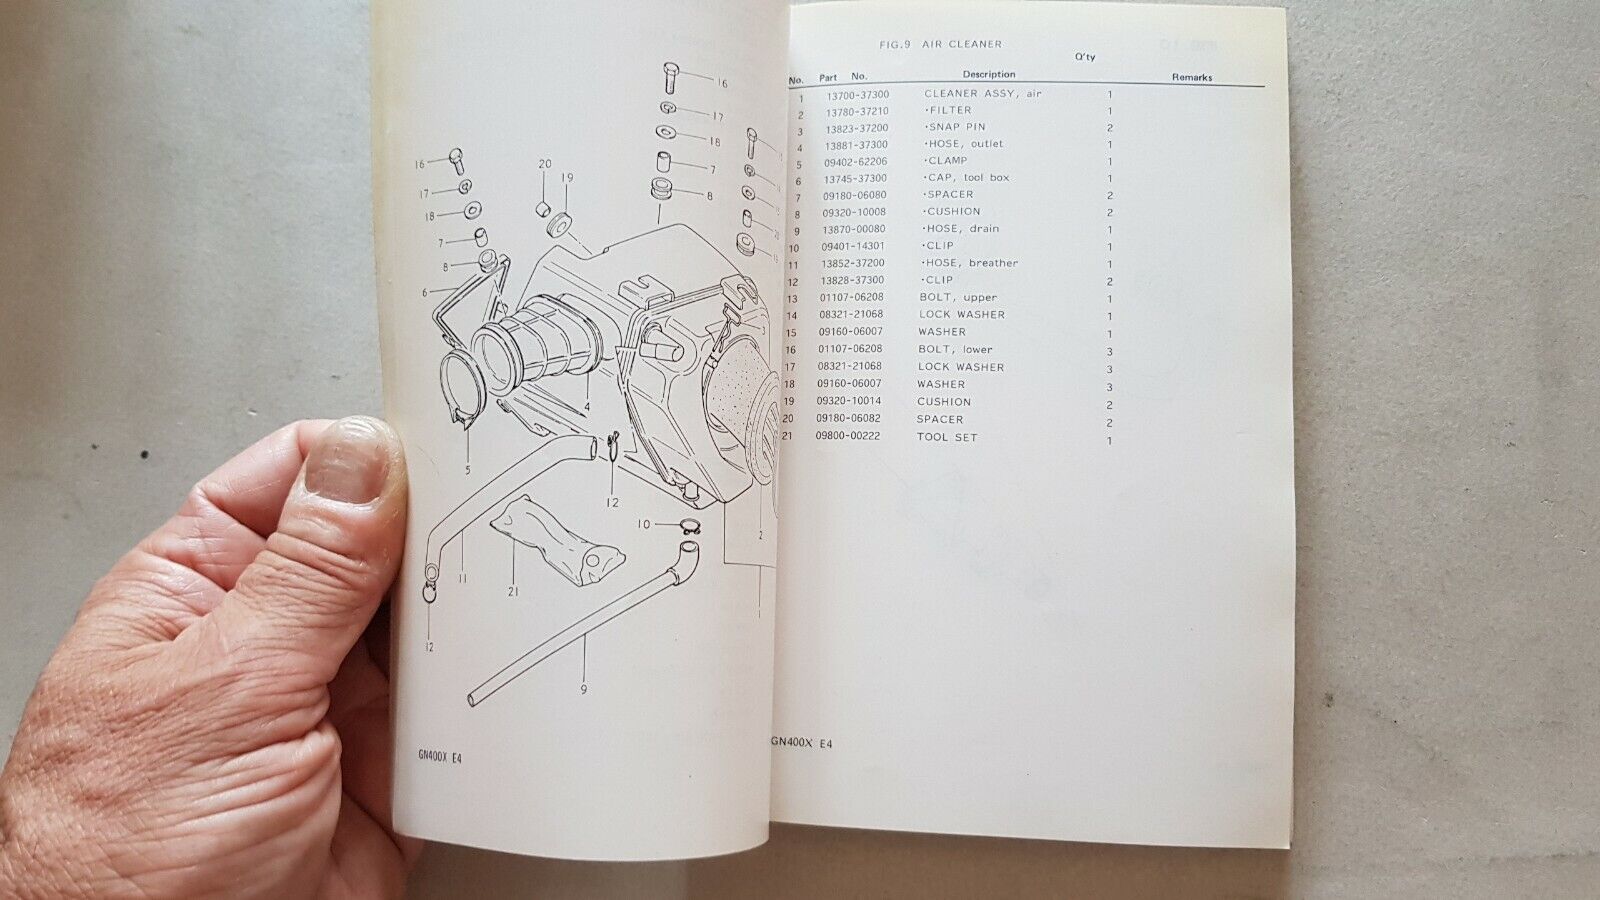 16
17
18
7
8
20
19
16
17
18
7
8
6
3
4
5
12
10
2
11
21
1
12
9
GN400X E4
FIG.9 AIR CLEANER
Q'ty
No. Part No. Description Remarks
1 13700-37300 CLEANER ASSY, air 1
2 13780-37210 ·FILTER 1
3 13823-37200 ·SNAP PIN 2
4 13881-37300 ·HOSE, outlet 1
5 09402-62206 ·CLAMP 1
6 13745-37300 ·CAP, tool box 1
7 09180-06080 ·SPACER 2
8 09320-10008 ·CUSHION 2
9 13870-00080 ·HOSE, drain 1
10 09401-14301 ·CLIP 1
11 13852-37200 ·HOSE, breather 1
12 13828-37300 ·CLIP 2
13 01107-06208 BOLT, upper 1
14 08321-21068 LOCK WASHER 1
15 09160-06007 WASHER 1
16 01107-06208 BOLT, lower 3
17 08321-21068 LOCK WASHER 3
18 09160-06007 WASHER 3
19 09320-10014 CUSHION 2
20 09180-06082 SPACER 2
21 09800-00222 TOOL SET 1
GN400X E4